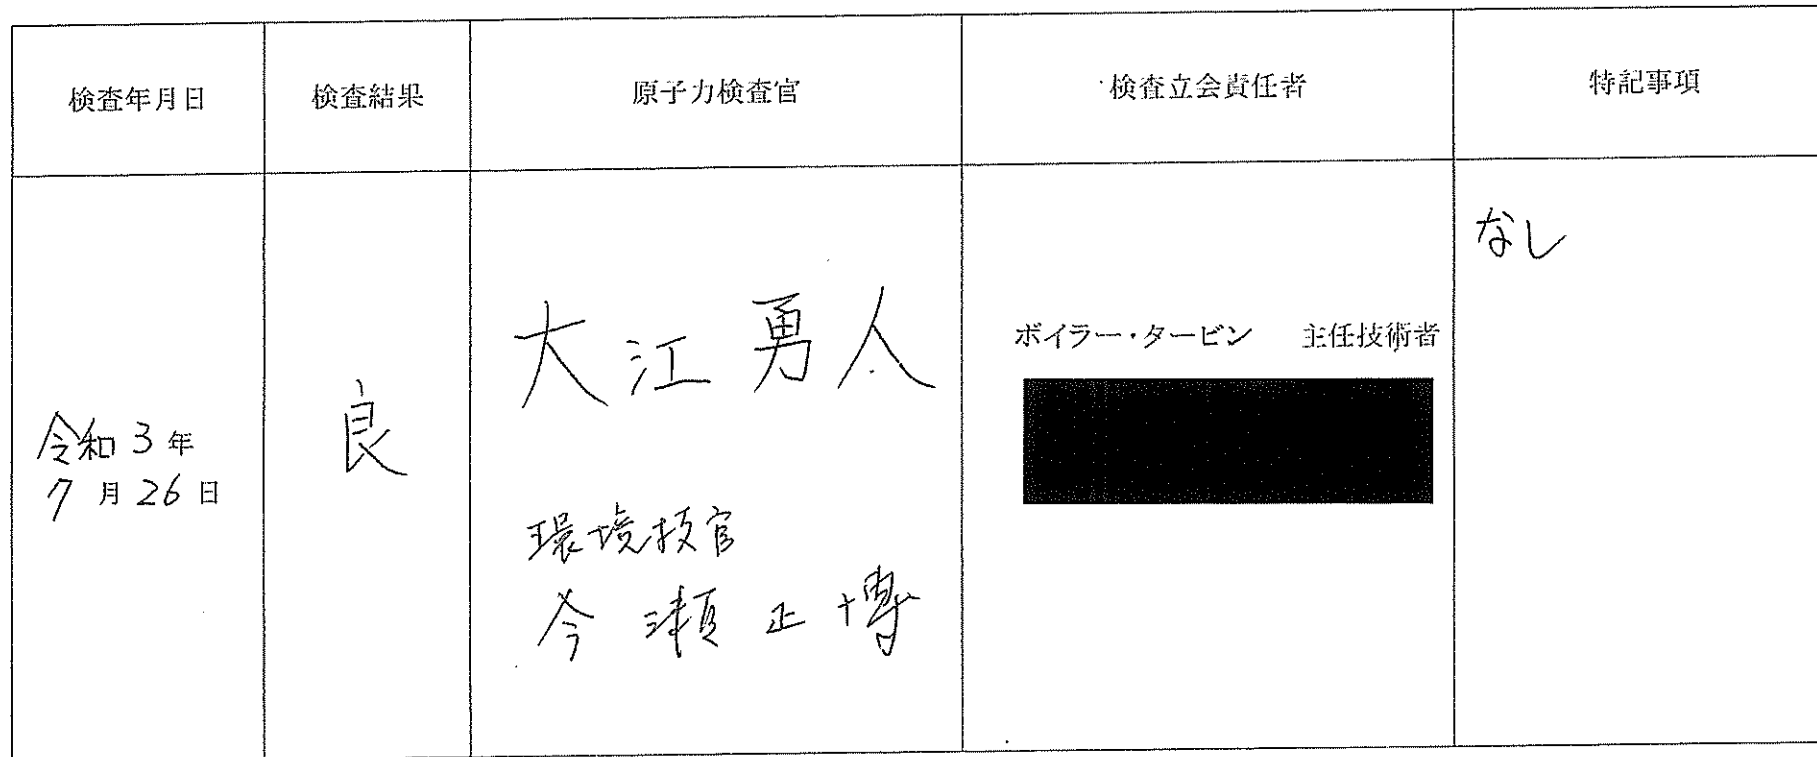 検査年月日
検査結果
原子力検査官
検査立会責任者
特記事項
令和3年
7月26日
良
大江勇人
環境技官
今瀬正博
ボイラー・タービン 主任技術者
なし